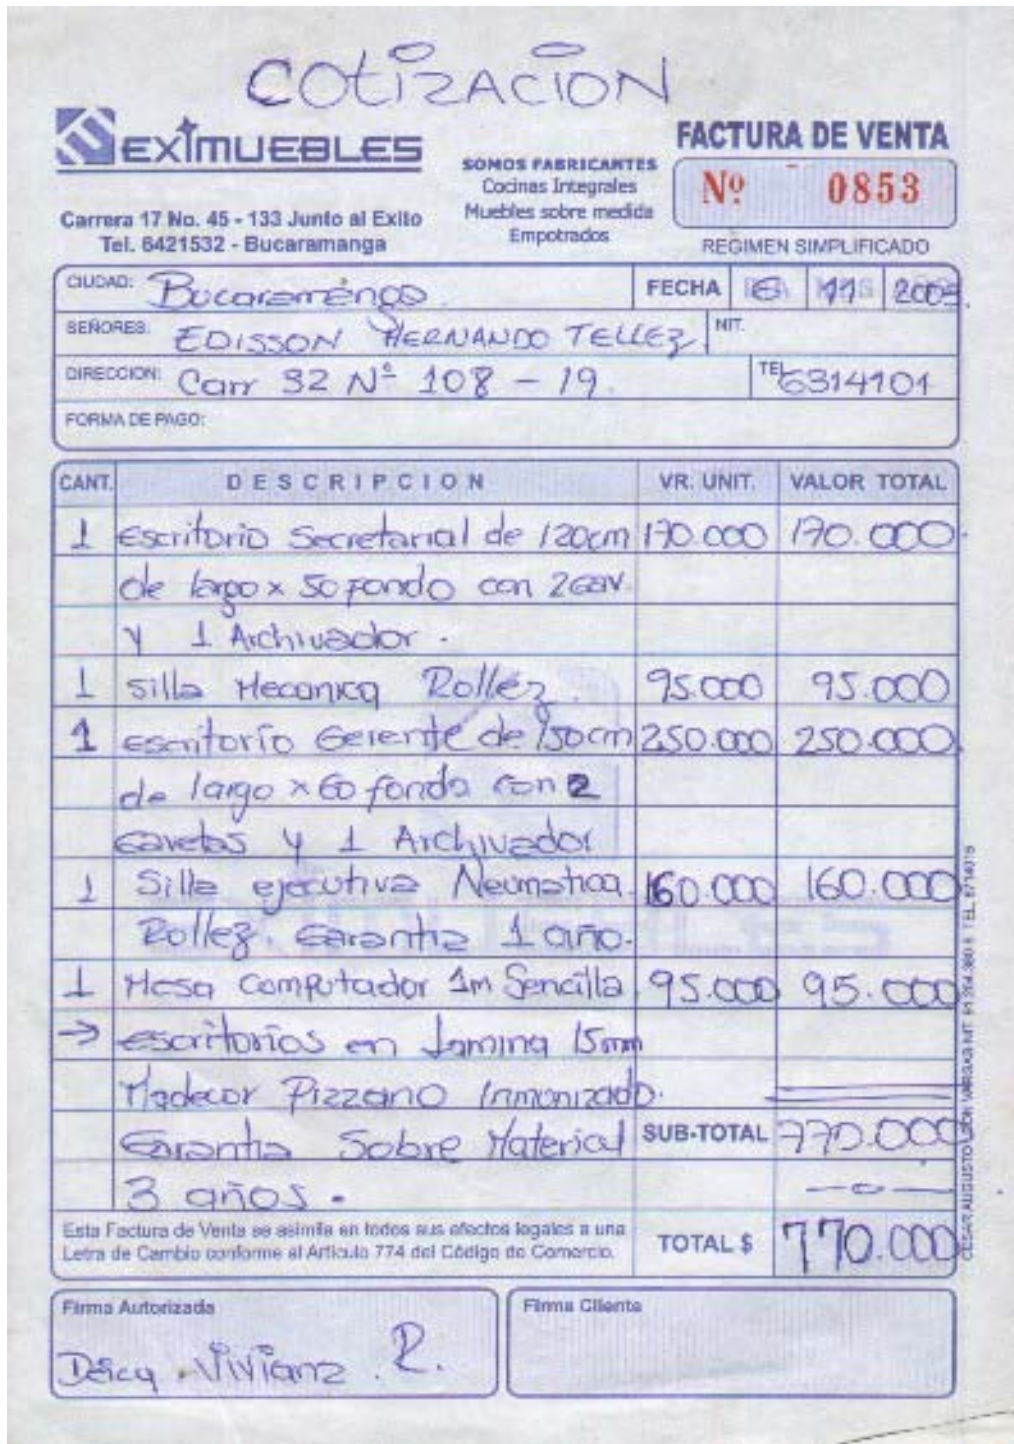 COTIZACION
EXIMUEBLES
FACTURA DE VENTA
SOMOS FABRICANTES
Cocinas Integrales
Muebles sobre medida
Empotrados
Nº 0853
Carrera 17 No. 45 - 133 Junto al Exito
Tel. 6421532 - Bucaramanga
REGIMEN SIMPLIFICADO
CIUDAD: Bucaramanga FECHA 6 11 2009.
SEÑORES: EDISSON HERNANDO TELLEZ NIT.
DIRECCION: Carr 32 Nº 108 - 19. TEL 6314101
FORMA DE PAGO:
CANT. DESCRIPCION VR. UNIT. VALOR TOTAL
1 Escritorio Secretarial de 120cm 170.000 170.000
de largo x 50 fondo con 2 Gav.
y 1 Archivador.
1 Silla Mecanica Rollez 95.000 95.000
1 escritorio Gerente de 150cm 250.000 250.000
de largo x 60 fondo con 2
Gavetas y 1 Archivador
1 Silla ejecutiva Neumatica 160.000 160.000
Rollez. Garantia 1 año.
1 Mesa Computador 1m Sencilla. 95.000 95.000
→ escritorios en Lamina 15mm
Madecor Pizzano Inmonizado.
Garantia Sobre Material SUB-TOTAL 770.000
3 años. —o—
Esta Factura de Venta se asimila en todos sus efectos legales a una
Letra de Cambio conforme al Articulo 774 del Código de Comercio.
TOTAL $ 770.000
Firma Autorizada Firma Cliente
Viviana R.